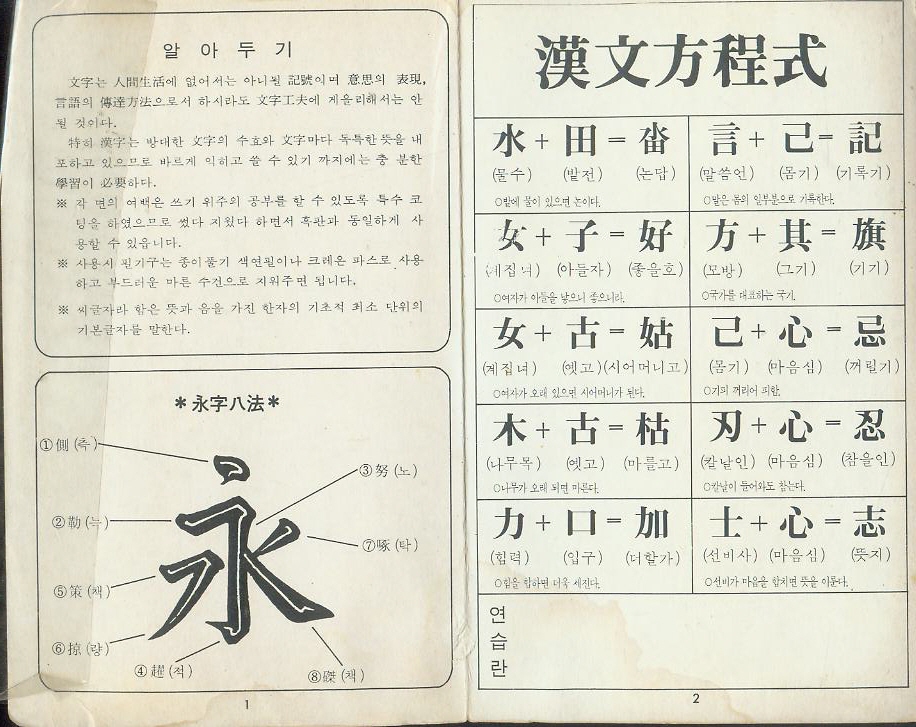 알 아 두 기
文字는 人間生活에 없어서는 아니될 記號이며 意思의 表現,
言語의 傳達方法으로서 하시라도 文字工夫에 게을리해서는 안
될 것이다.
特히 漢字는 방대한 文字의 수효와 文字마다 독특한 뜻을 내
포하고 있으므로 바르게 익히고 쓸 수 있기 까지에는 충 분한
學習이 必要하다.
※ 각 면의 여백은 쓰기 위주의 공부를 할 수 있도록 특수 코
팅을 하였으므로 썼다 지웠다 하면서 흑판과 동일하게 사
용할 수 있읍니다.
※ 사용시 필기구는 종이풀기 색연필이나 크레온 파스로 사용
하고 부드러운 마른 수건으로 지워주면 됩니다.
※ 씨글자라 함은 뜻과 음을 가진 한자의 기초적 최소 단위의
기본글자를 말한다.
*永字八法*
①側 (측)
③努 (노)
②勒 (늑)
⑦啄 (탁)
⑤策 (책)
⑥掠 (량)
④趯 (적)
⑧磔 (책)
永
1
漢文方程式
水 + 田 = 畓
(물수) (밭전) (논답)
○밭에 물이 있으면 논이다.
言 + 己 = 記
(말씀언) (몸기) (기록기)
○말은 몸의 일부분으로 기록한다.
女 + 子 = 好
(계집녀) (아들자) (좋을호)
○여자가 아들을 낳으니 좋으니라.
方 + 其 = 旗
(모방) (그기) (기기)
○국가를 대표하는 국기.
女 + 古 = 姑
(계집녀) (옛고) (시어머니고)
○여자가 오래 있으면 시어머니가 된다.
己 + 心 = 忌
(몸기) (마음심) (꺼릴기)
○기의 꺼리어 피함.
木 + 古 = 枯
(나무목) (옛고) (마를고)
○나무가 오래 되면 마른다.
刃 + 心 = 忍
(칼날인) (마음심) (참을인)
○칼날이 들어와도 참는다.
力 + 口 = 加
(힘력) (입구) (더할가)
○힘을 합하면 더욱 세진다.
士 + 心 = 志
(선비사) (마음심) (뜻지)
○선비가 마음을 합치면 뜻을 이룬다.
연
습
란
2